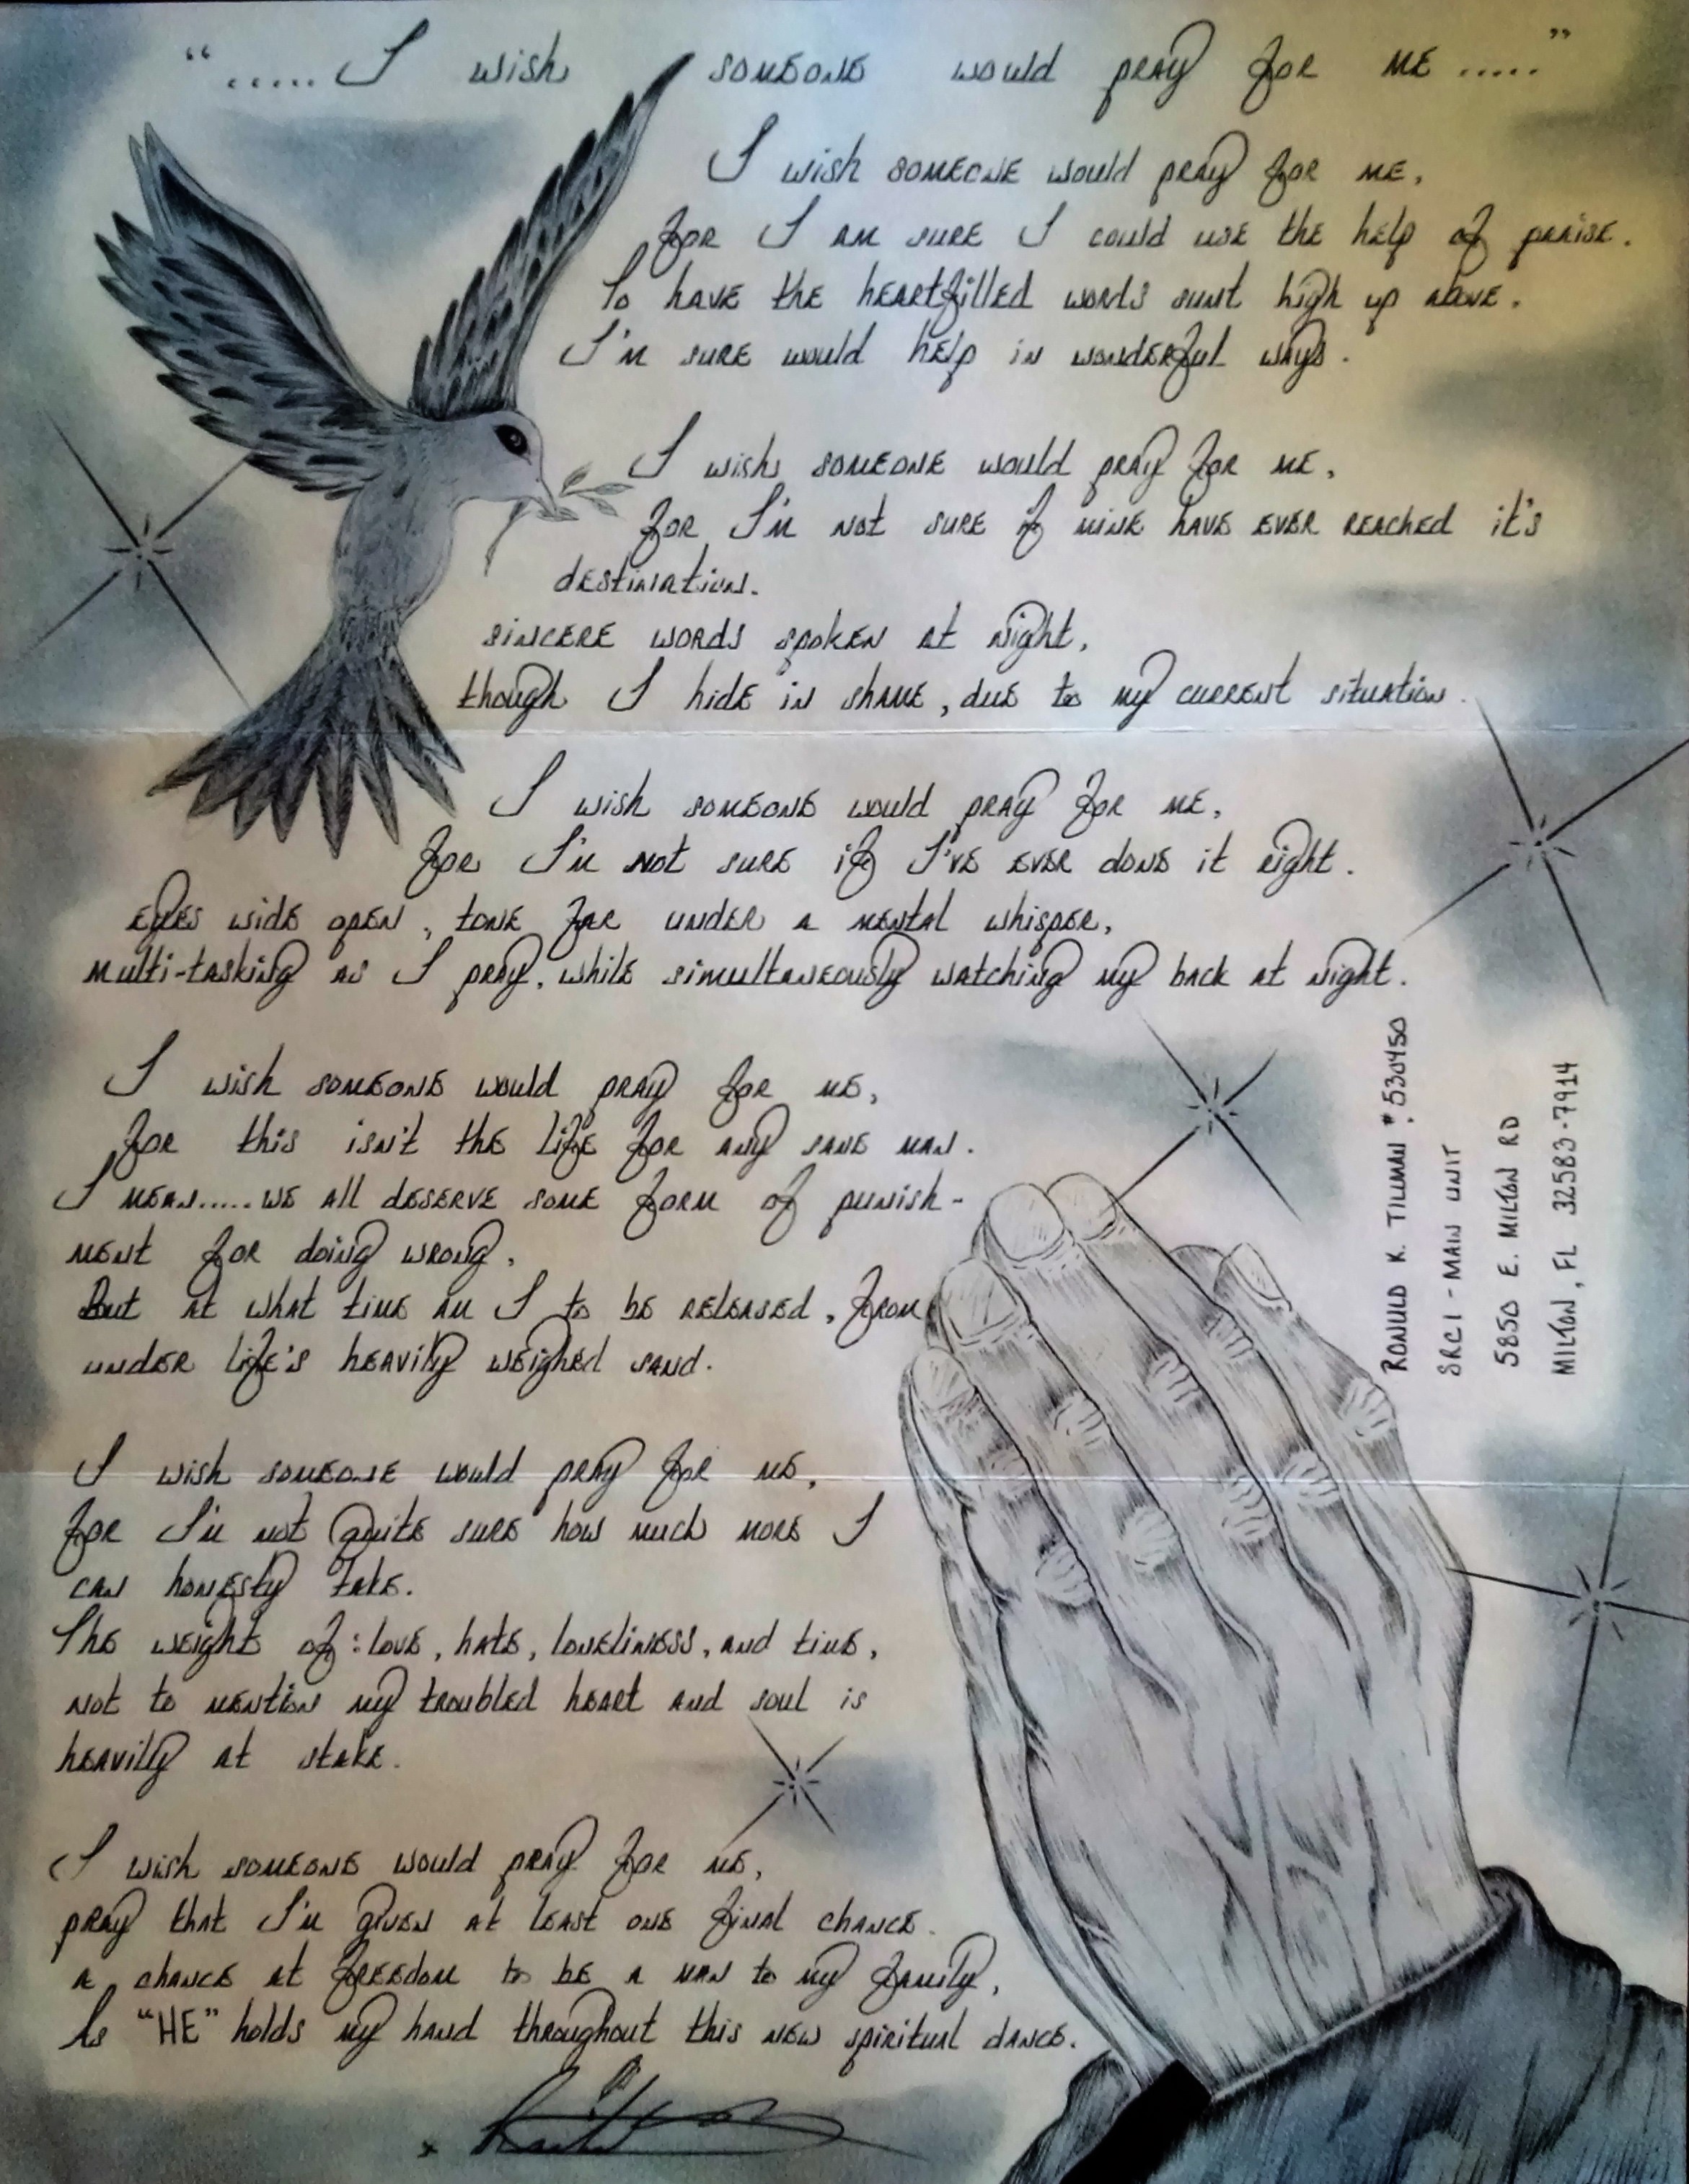 "..... I wish someone would pray for me ....."
I wish someone would pray for me,
for I am sure I could use the help of praise.
To have the heartfilled words sunt high up above.
I'm sure would help in wonderful ways.
I wish someone would pray for me,
for I'm not sure if mine have ever reached it's
destination.
sincere words spoken at night,
though I hide in shame, due to my current situation.
I wish someone would pray for me,
for I'm not sure if I've ever done it right.
Eyes wide open, tone far under a mental whisper,
Multi-tasking as I pray, while simultaneously watching my back at night.
I wish someone would pray for me,
for this isn't the life for any sane man.
I mean..... we all deserve some form of punish-
ment for doing wrong,
But at what time am I to be released, from
under life's heavily weighed sand.
I wish someone would pray for me,
for I'm not quite sure how much more I
can honesty take.
The weight of: love, hate, loneliness, and time,
not to mention my troubled heart and soul is
heavilly at stake.
I wish someone would pray for me,
pray that I'm given at least one final chance.
a chance at freedom to be a man to my family,
As "HE" holds my hand throughout this new spiritual dance.
RONULD K. TILLMAN #530450
SRCI - MAIN UNIT
5850 E. MILTON RD
MILTON, FL 32583-7914